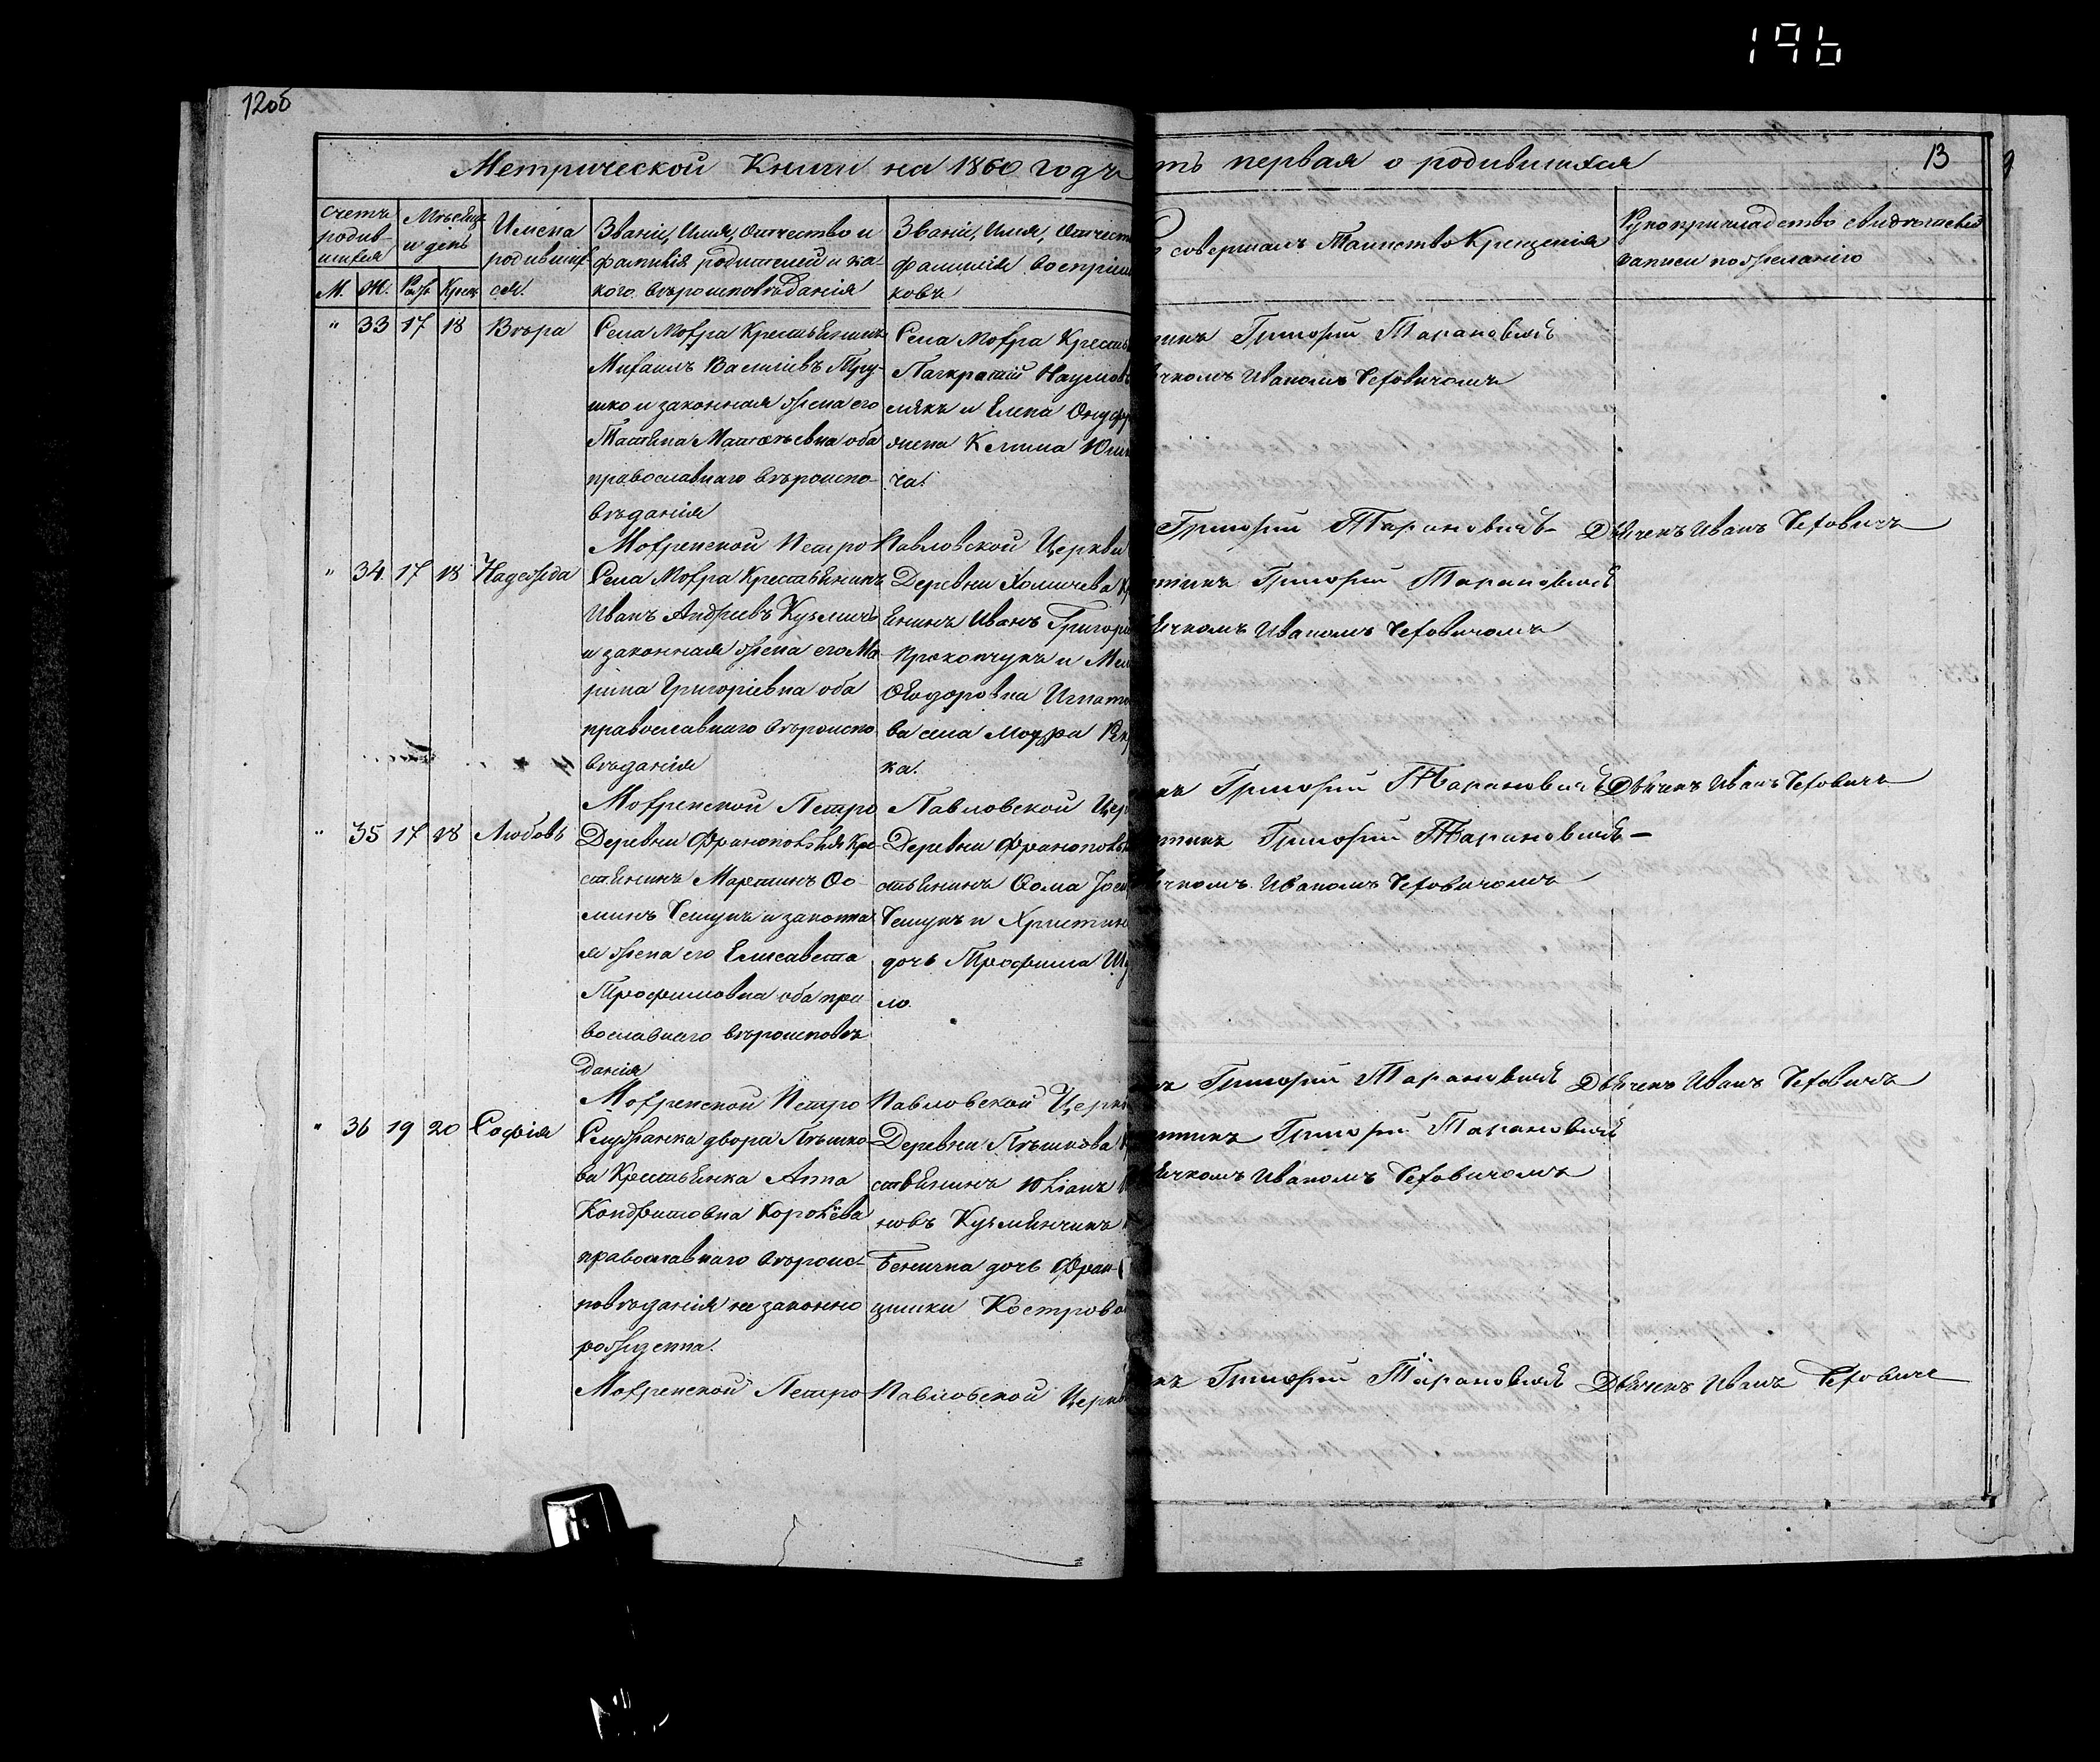 196
12об
Метрической Книги на 1860 годъ
ть первая о родившихся 13
Счетъ родив-шихся
Мѣсяцъ и день
Имена родивших-ся.
Званіе, Имя, Отчество и фамилія родителей и ка-кого вѣроисповѣданія
Званіе, Имя, Отчест
фамилія воспріем
ковъ
совершалъ Таинство Крещенія
Рукоприкладство свидѣтелей записи по желанію
М. Ж. Рожд Крещ
" 33 17 18 Вѣра
Села Мохра Крестьянинъ
Михаилъ Василіевъ Тру-
шко и законная жена его
Татіяна Матѳеевна оба
православнаго вѣроиспо-
вѣданія
Села Мохра Кресть
Панкратій Наумовъ
лякъ и Елена Онуфр
жена Климa Юшк
ча.
тинъ Григорій Тарановичъ
ячкомъ Иваномъ Чеховичомъ
Мохренской Петро Павловской Церкви
Григорій Тарановичъ Дьячекъ Иванъ Чеховичъ
" 34 17 18 Надежда
Села Мохра Крестьянинъ
Иванъ Андреевъ Кузьмичъ
и законная жена его Ма
рина Григоріевна оба
православнаго вѣроиспо
вѣданія
Деревни Хомичева Кр
янинъ Иванъ Григорі
Прокопчукъ и Мел
Ѳеодоровна Игнато
ва села Мохра
ка.
тинъ Григорій Тарановичъ
ячкомъ Иваномъ Чеховичомъ
Мохренской Петро Павловской Цер
нъ Григорій Тарановичъ Дьячекъ Иванъ Чеховичъ
" 35 17 18 Любовь
Деревни Франополья Кре-
стьянинъ Мартинъ Ѳо-
минъ Чешунъ и законна
я жена его Елисавета
Трофимовна оба пра
вославнаго вѣроисповѣ
данія
Деревни Франополья
стьянинъ Ѳома Іоси
Чешунъ и Христин
дочь Трофима Шу
ло.
тинъ Григорій Тарановичъ
ячкомъ Иваномъ Чеховичомъ
Мохренской Петро Павловской Церк
нъ Григорій Тарановичъ Дьячекъ Иванъ Чеховичъ
" 36 19 20 Софія
Служанка двора Пѣшко
ва Крестьянка Анна
Кондратовна Королёва
православнаго вѣроис-
повѣданія не законно
рожденна.
Деревни Пѣшкова К
стьянинъ Юліанъ
новъ Кузьмянчикъ
Бенигна дочь Фран-
цишки Костров
тинъ Григорій Тарановичъ
ячкомъ Иваномъ Чеховичомъ
Мохренской Петро Павловской Церков
нъ Григорій Тарановичъ Дьячекъ Иванъ Чеховичъ